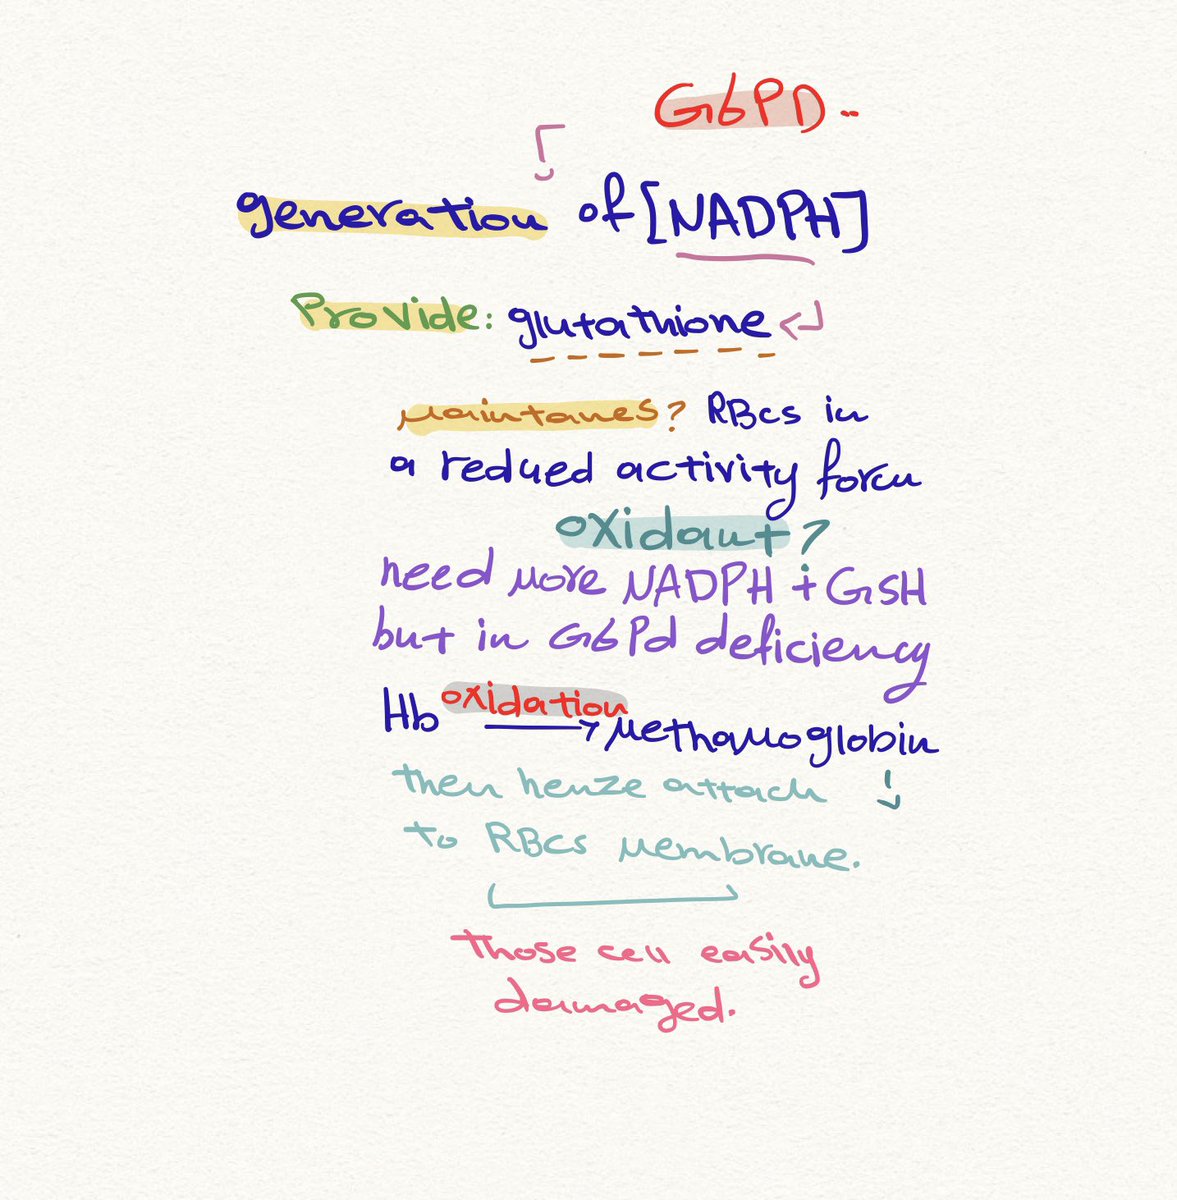 G6PD..
generation of [NADPH]
Provide: glutathione
maintanes? RBcs in
a redued activity form
oxidant?
need more NADPH + GSH
but in G6Pd deficiency
Hb oxidation → methamoglobin
then henze attach
to RBCs membrane.
those cell easily
damaged.